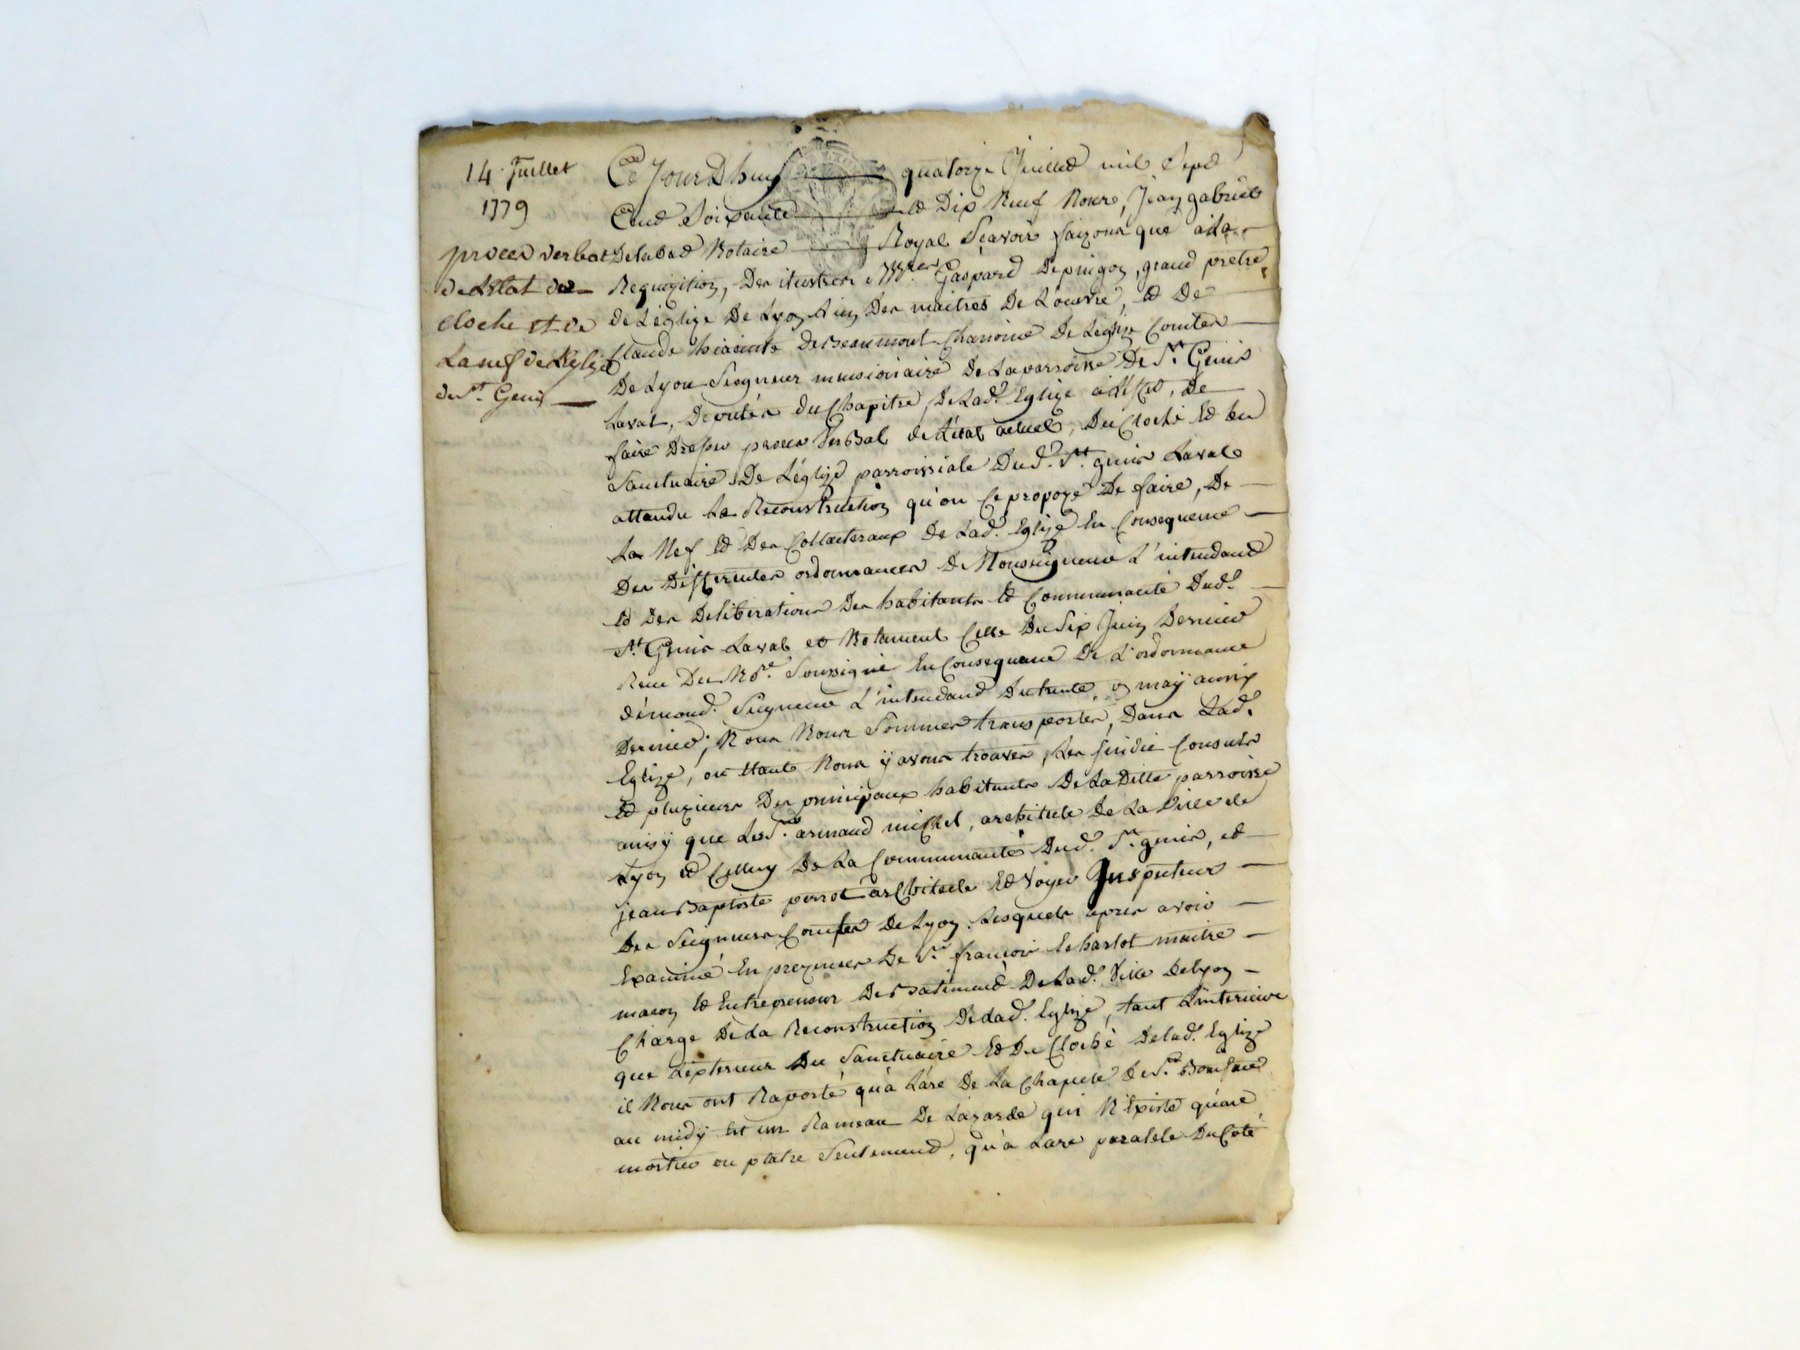 14. Juillet
1779
procès verbal
de L'Etat du
cloche et de
La nef de L'Eglize
de St. Genis
Ce Jour D'huy quatorze Juillet mil Sept
Cent Soixante et Dix Neuf Nous, Jean gabriel
Delabad Notaire Royal Sçavoir faizons que a La
Requizition, Des illustres Gaspard Depingon, grand pretre
de L'églize De Lyon L'un Des maitres De L'oeuvre, et De
Claude hiacinte De Beaumont Chanoine De L'églize Comtes
De Lyon Seigneur mansionaire De La parroisse De St. Genis
Laval, Deputés Du Chapitre, De Lad. Eglize a De
faire Dresser procès Verbal de L'état actuel, Du Cloché Et Du
Sanctuaire De L'églize parroissiale Dud. St. genis Laval
attandu La Reconstruction qu'on Ce propoze De faire, De
La Nef et Des Collateraux De Lad. Eglize En Consequence
Des Differentes ordonnances De Monseigneur L'intendant
et Des Deliberations Des habitants et Communauté Dud.
St. Genis Laval et Notament Celle Du Six Juin Dernier
Reçue Du No.re Soussigné En Consequence De L'ordonnance
de mond. Seigneur L'intendant Du trente May aussy
Dernier, Nous Nous Sommes transportés, Dans Lad.
Eglize, où Etant Nous y avons trouvés, Les sindic Consuls
et pluzieurs Des principaux habitants De La Ditte parroisse
ainsy que Le Sr. armand michel, architecte De La Ville de
Lyon et Celluy De La Communauté Dud. St. genis, et
jean Baptiste perrot architecte Et Voyer Inspecteur
Des Seigneurs Comtes De Lyon. Lesquels apres avoir
Examiné En prezence De Sr. françois Lebarlot maitre
maçon et Entrepreneur De Batiment De Lad. Ville de Lyon
Chargé De La Reconstruction De Lad. Eglize, tant L'interieur
que L'exterieur Du Sanctuaire Et Du Cloché De Lad. Eglize
il Nous ont Raporté qu'a L'are De La Chapelle De St. Boniface
au midy Est un Rameau De Lezarde qui N'Existe qu'au
mortier ou platre Seulement, qu'a L'are paralele Du Coté